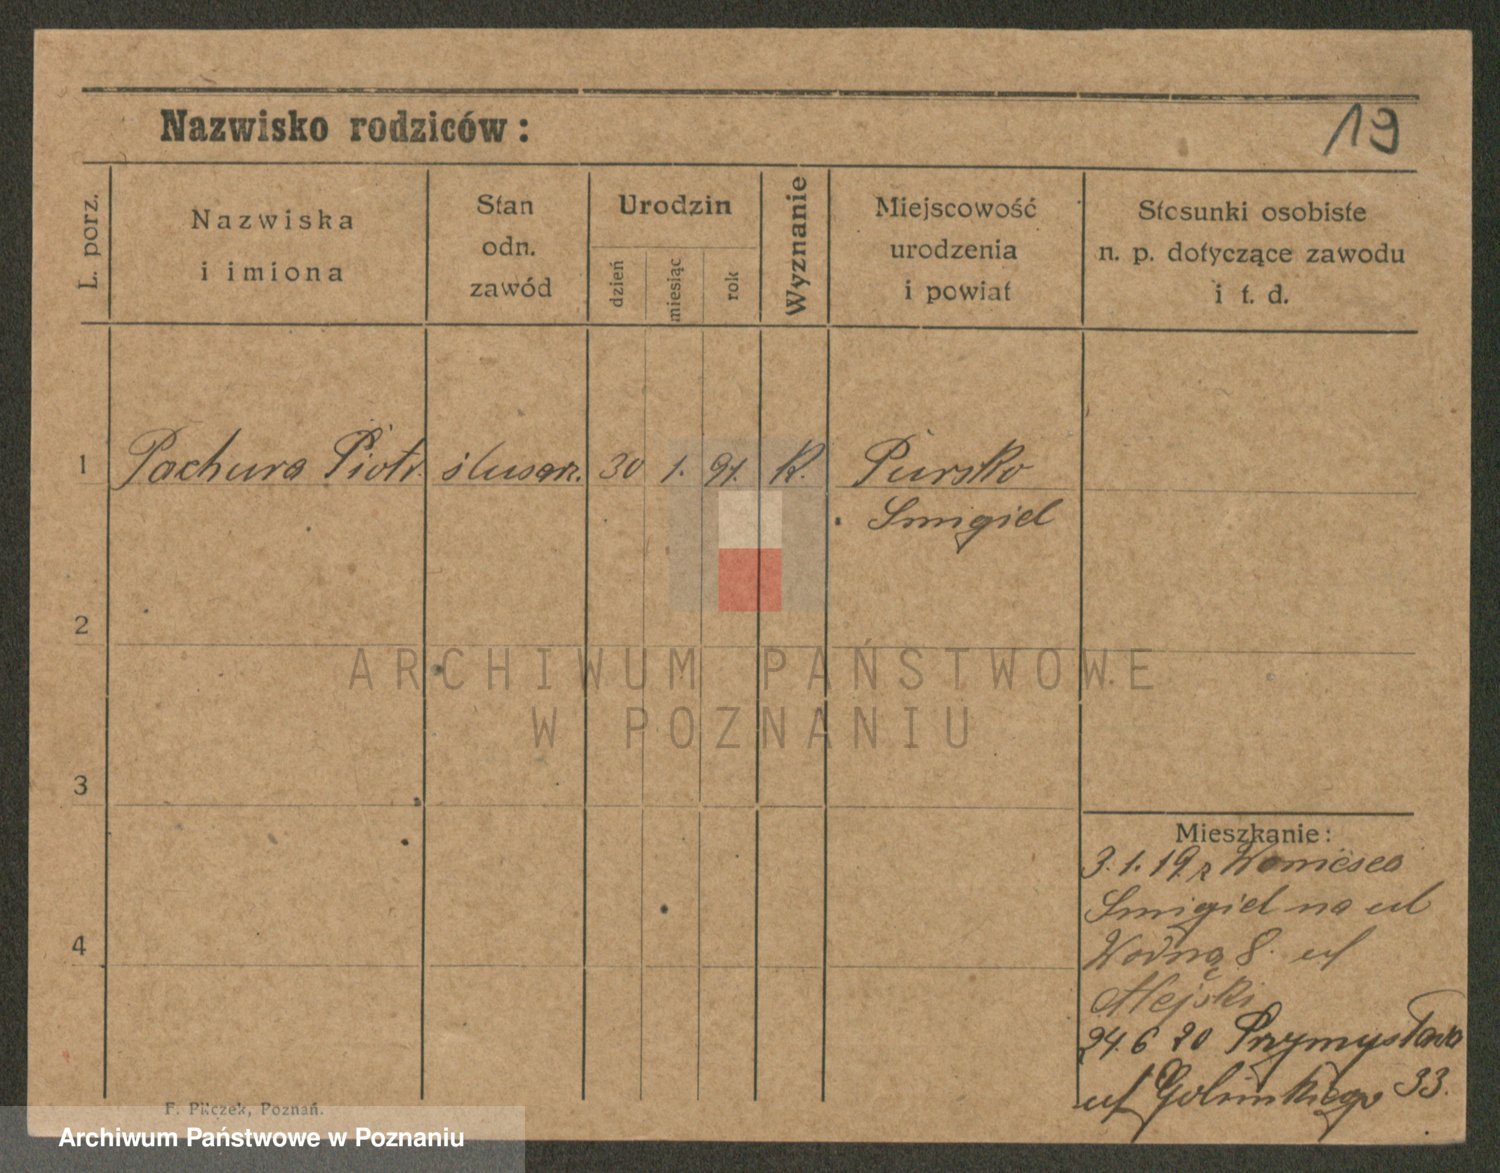 19
Nazwisko rodziców:
L. porz.
Nazwiska
i imiona
Stan
odn.
zawód
Urodzin
dzień
miesiąc
rok
Wyznanie
Miejscowość
urodzenia
i powiat
Stosunki osobiste
n. p. dotyczące zawodu
i t. d.
1 Pachura Piotr. ślusarz. 30 1. 91. K. Pursko
Smigiel
2
ARCHIWUM PAŃSTWOWE
W POZNANIU
3
Mieszkanie:
3.1.19 z
Smigiel na ul
4
Wodną 8. ul
24.6 20
ul 33.
F. Pilczek, Poznań.
Archiwum Państwowe w Poznaniu